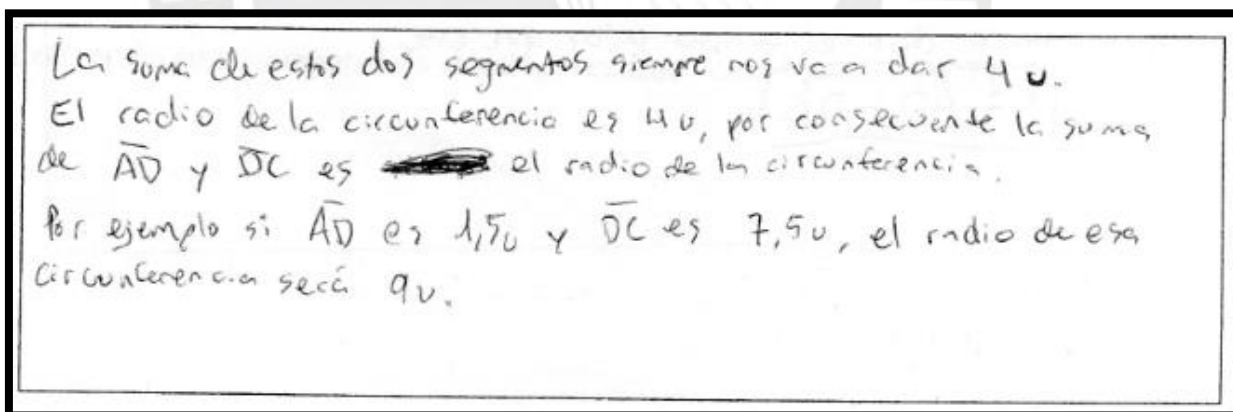 La suma de estos dos segmentos siempre nos va a dar 4 u.
El radio de la circunferencia es 4 u, por consecuente la suma
de AD y DC es el radio de la circunferencia.
Por ejemplo si AD es 1,5u y DC es 7,5u, el radio de esa
circunferencia será 9u.